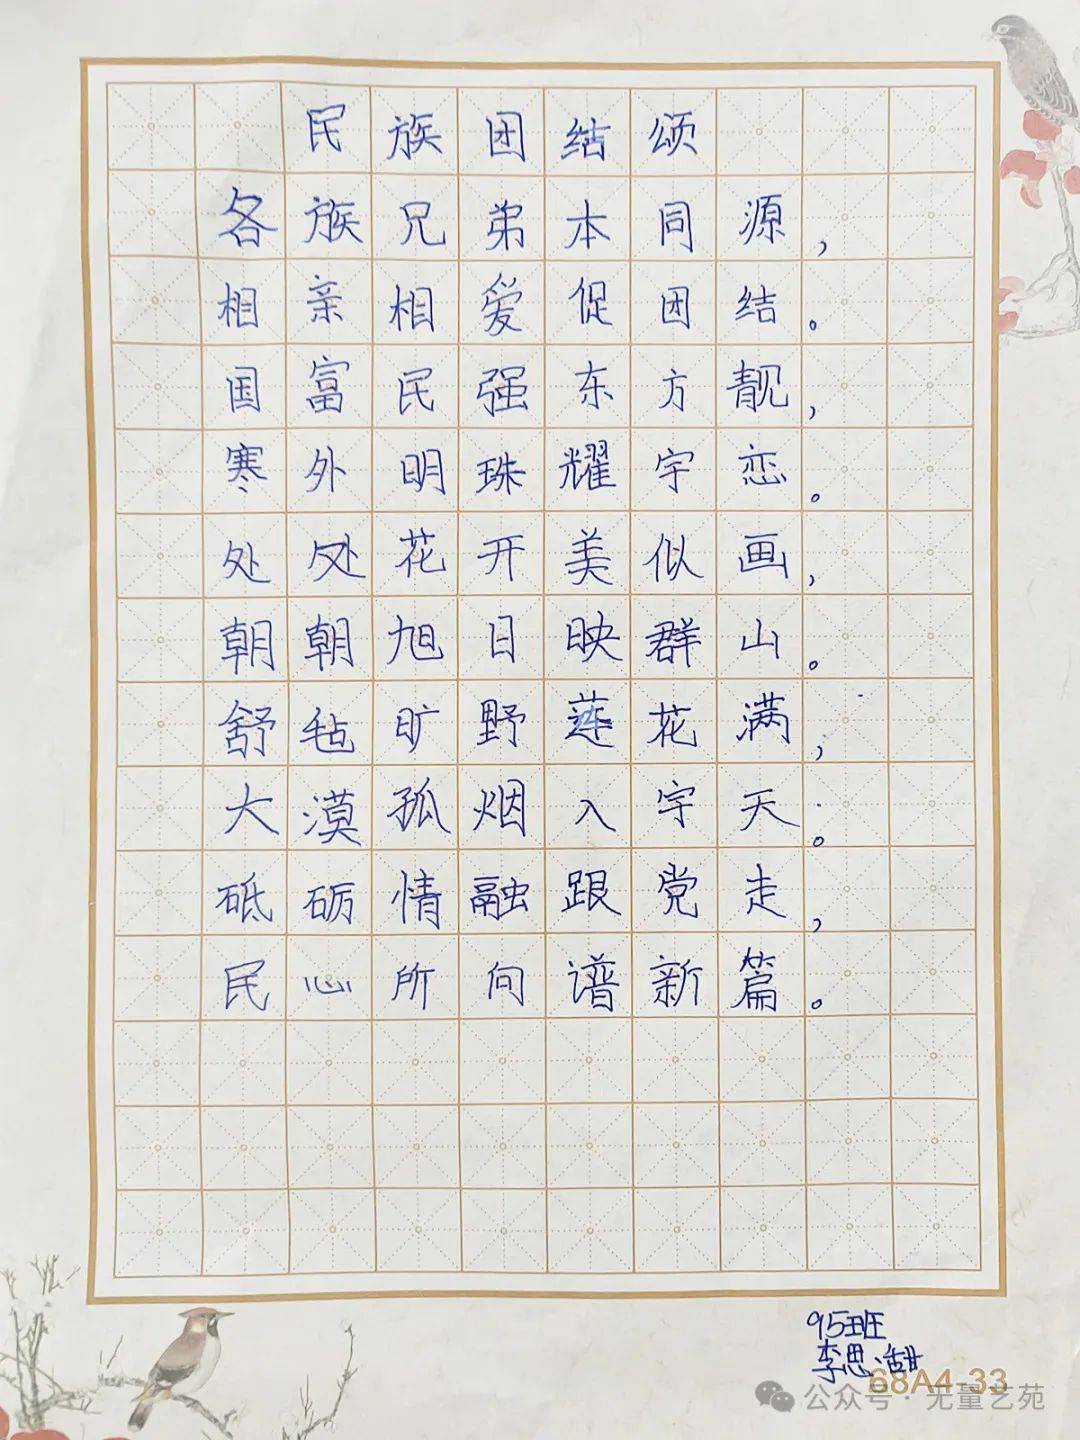 民族团结颂
各族兄弟本同源，
相亲相爱促团结。
国富民强东方靓，
寒外明珠耀宇恋。
处处花开美似画，
朝朝旭日映群山。
舒毡旷野莲花满，
大漠孤烟入宇天。
砥砺情融跟党走，
民心所向谱新篇。
95班
李思甜
68A4-33
公众号·光量艺苑